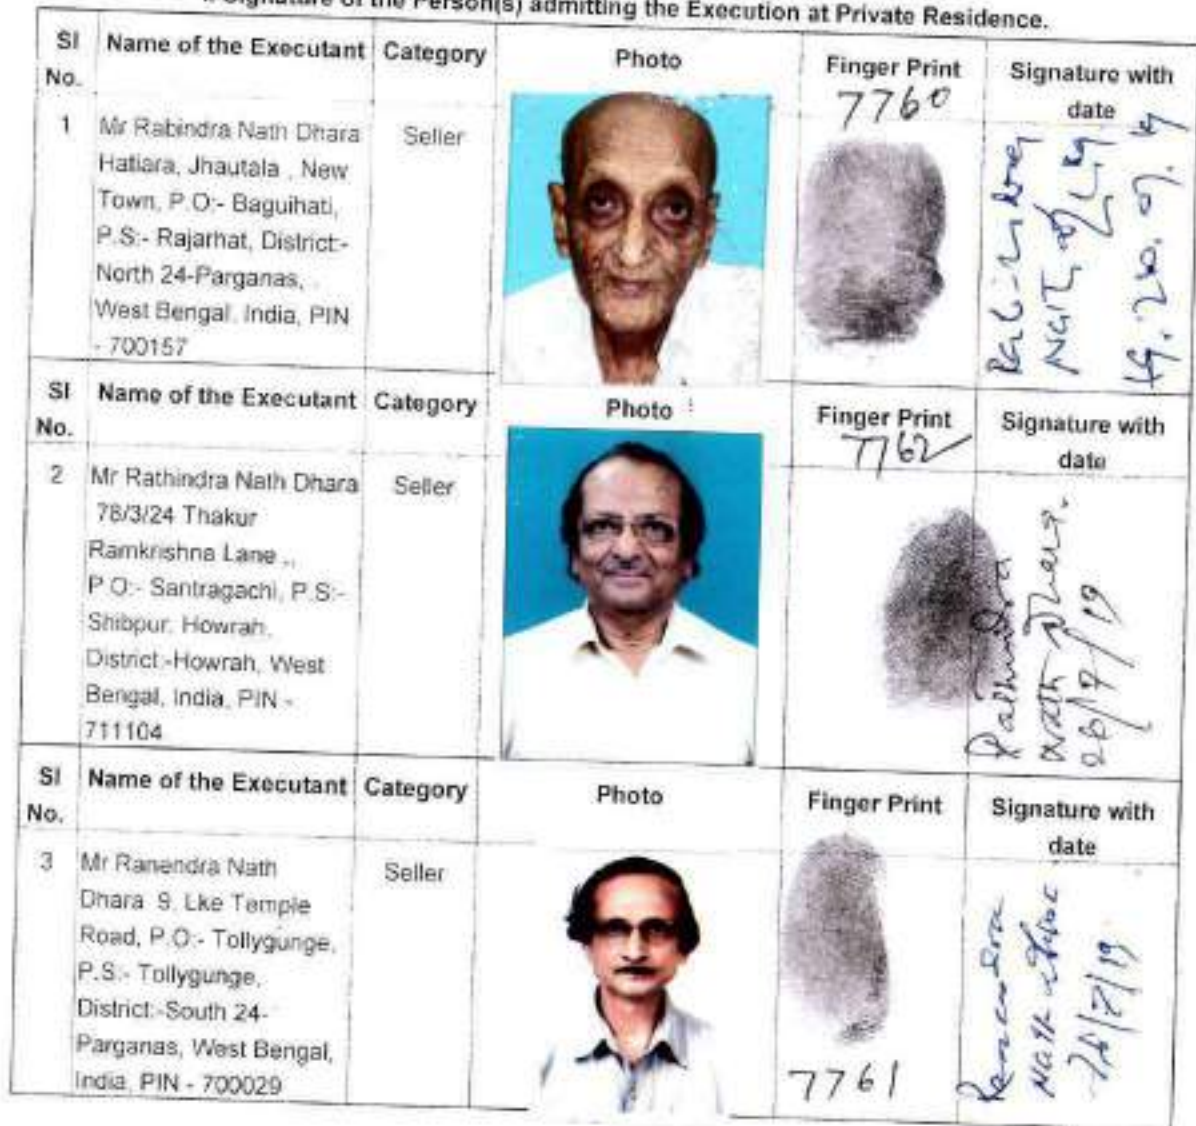 Signature of the Person(s) admitting the Execution at Private Residence.
Sl No. Name of the Executant Category Photo Finger Print Signature with date
7760
1 Mr Rabindra Nath Dhara Seller
Hatiara, Jhautala , New
Town, P.O:- Baguihati,
P.S:- Rajarhat, District:-
North 24-Parganas,
West Bengal, India, PIN
- 700157
Sl No. Name of the Executant Category Photo Finger Print Signature with date
7762
2 Mr Rathindra Nath Dhara Seller
78/3/24 Thakur
Ramkrishna Lane .,
P.O:- Santragachi, P.S:-
Shibpur, Howrah,
District:-Howrah, West
Bengal, India, PIN -
711104
Rathindra
Nath Dhara.
26/7/19
Sl No. Name of the Executant Category Photo Finger Print Signature with date
3 Mr Ranendra Nath Seller
Dhara 9, Lke Temple
Road, P.O:- Tollygunge,
P.S:- Tollygunge,
District:-South 24-
Parganas, West Bengal,
India, PIN - 700029
7761
Ranendra
Nath Dhara
26/7/19